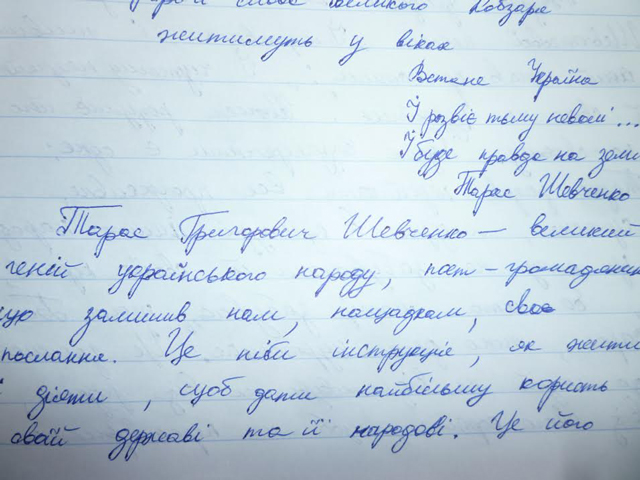 слова великого Кобзаря
житимуть у віках
Встане Україна
І розвіє тьму неволі...
І буде правда на земл
Тарас Шевченко
Тарас Григорович Шевченко — великий
геній українського народу, поет-громадянин
що залишив нам, нащадкам, своє
послання. Це ніби інструкція, як жити
і діяти, щоб дати найбільшу користь
своїй державі та її народові. Це його